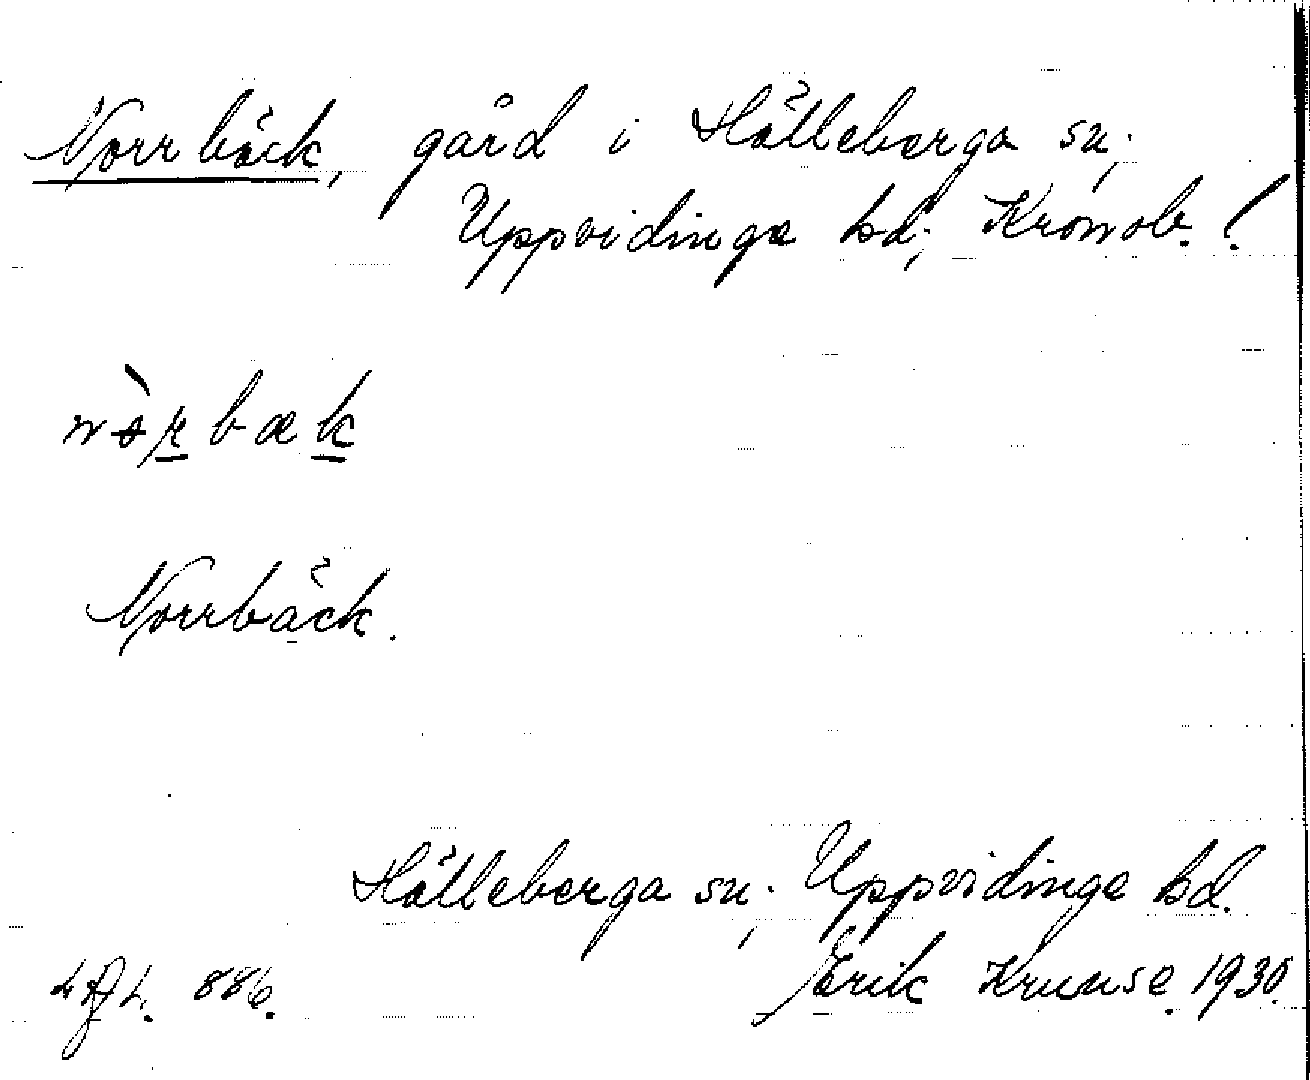 Norrbäck, gård i Hälleberga sn,
Uppvidinge hd, Kronob. l.
Norrbäck.
Hälleberga sn, Uppvidinge hd.
886. Erik Kruuse 1930.